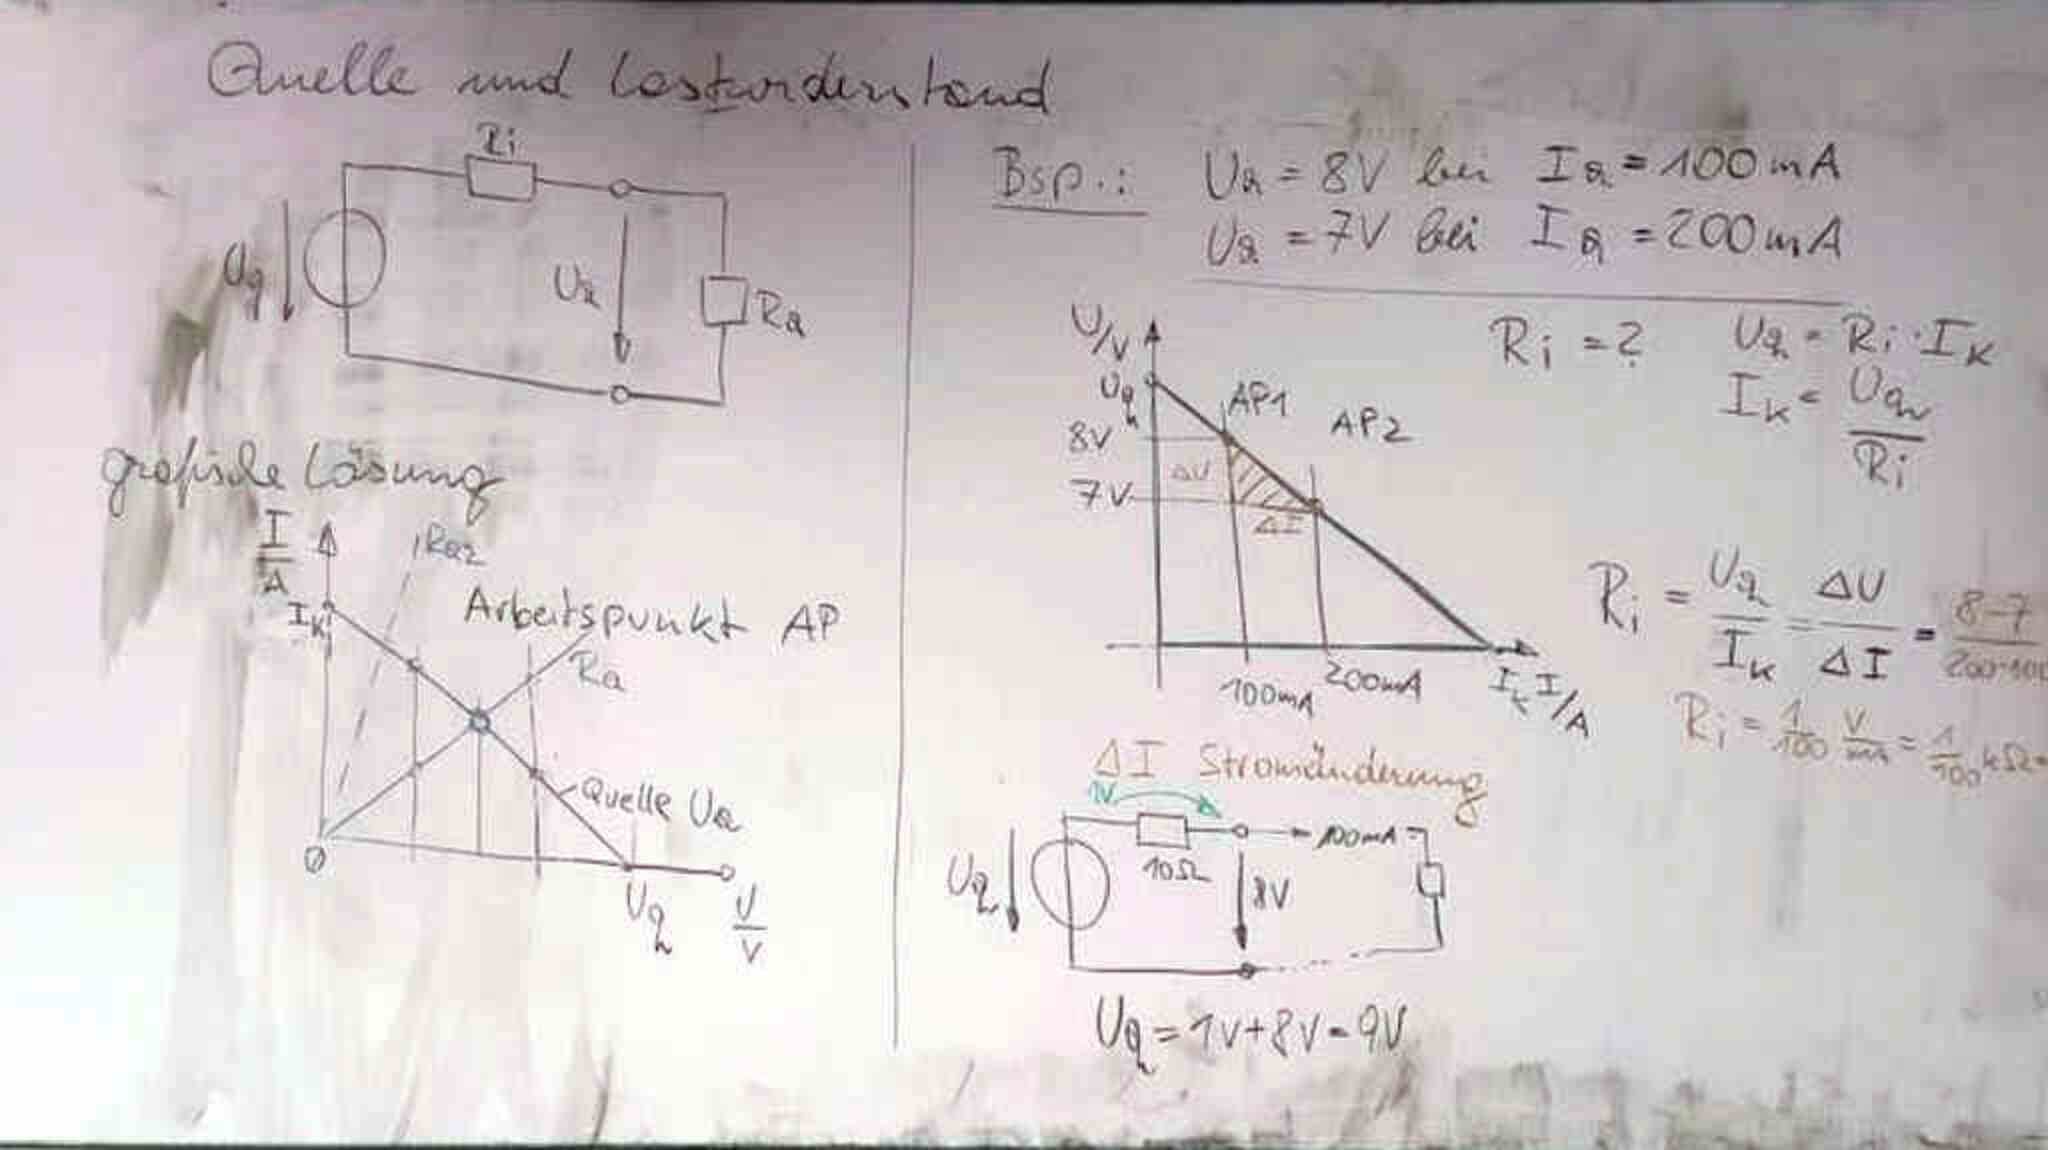 Quelle und Lastwiderstand
Ri
Uq
Ua
Ra
grafische Lösung
I/A
IK
Ra2
Arbeitspunkt AP
Ra
Quelle Ua
0
Uq
U/V
Bsp.: Ua = 8V bei Ia = 100mA
Ua = 7V bei Ia = 200mA
Ri = ?
Uq = Ri · IK
IK = Uq/Ri
U/V
Uq
AP1
AP2
8V
ΔU
7V
ΔI
100mA
200mA
IK
I/A
Ri = Uq/IK = ΔU/ΔI = 8-7/200-100
Ri = 1/100 V/mA = 1/100 kΩ =
ΔI Stromänderung
1V
100mA
10Ω
Uq
8V
Uq = 1V+8V = 9V